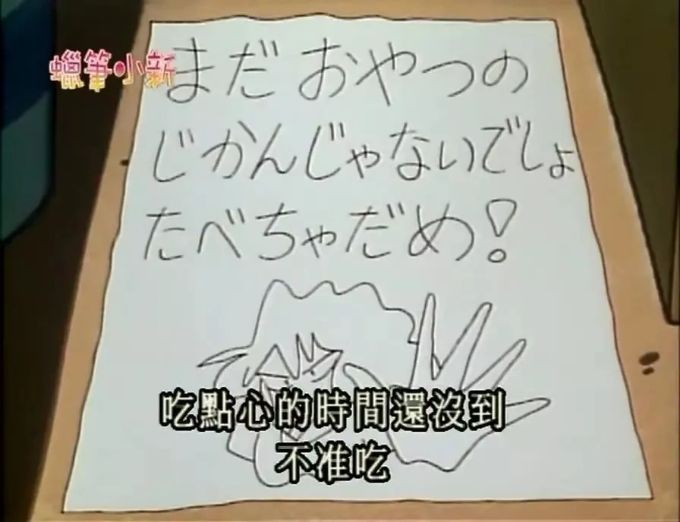 蠟筆小新
まだ おやつの
じかんじゃないでしょ
たべちゃだめ!
吃點心的時間還沒到
不准吃